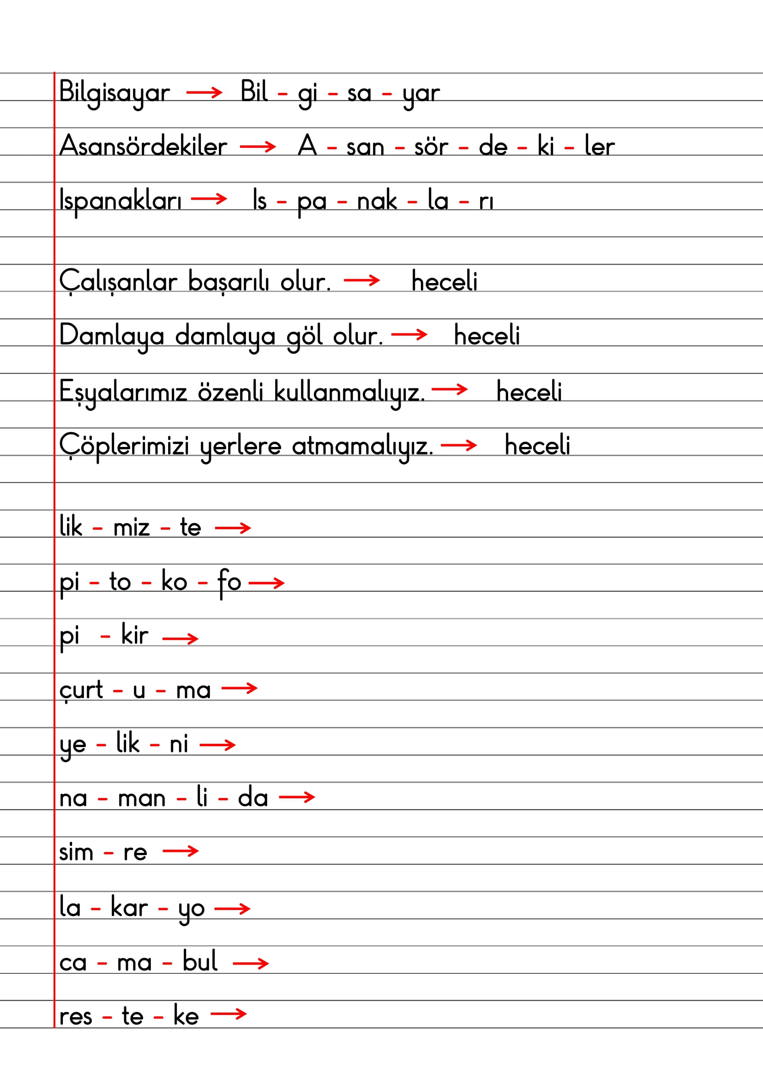 Bilgisayar → Bil - gi - sa - yar
Asansördekiler → A - san - sör - de - ki - ler
Ispanakları → Is - pa - nak - la - rı
Çalışanlar başarılı olur. → heceli
Damlaya damlaya göl olur. → heceli
Eşyalarımız özenli kullanmalıyız. → heceli
Çöplerimizi yerlere atmamalıyız. → heceli
lik - miz - te →
pi - to - ko - fo →
pi - kir →
çurt - u - ma →
ye - lik - ni →
na - man - li - da →
sim - re →
la - kar - yo →
ca - ma - bul →
res - te - ke →